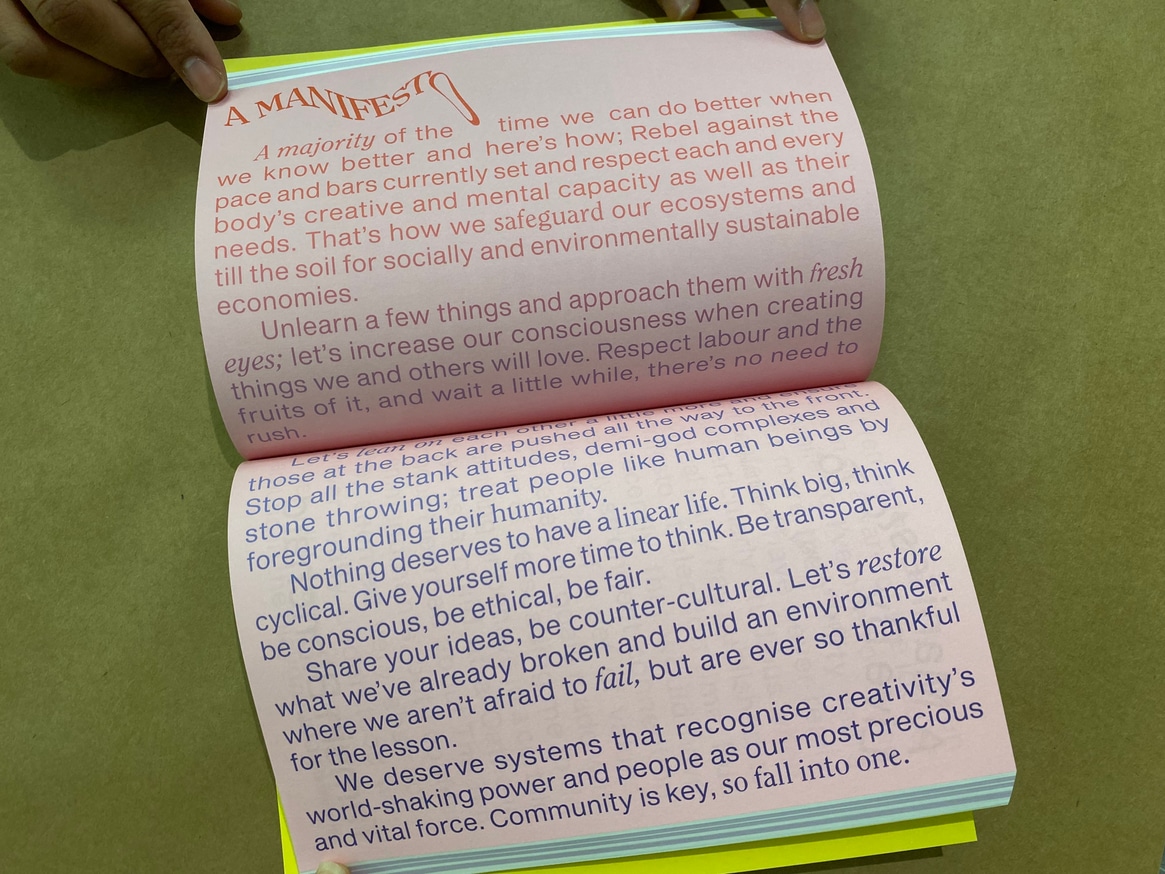 A MANIFESTO
A majority of the time we can do better when
we know better and here's how; Rebel against the
pace and bars currently set and respect each and every
body's creative and mental capacity as well as their
needs. That's how we safeguard our ecosystems and
till the soil for socially and environmentally sustainable
economies.
Unlearn a few things and approach them with fresh
eyes; let's increase our consciousness when creating
things we and others will love. Respect labour and the
fruits of it, and wait a little while, there's no need to
rush.
Let's lean on each other a little more and ensure
those at the back are pushed all the way to the front.
Stop all the stank attitudes, demi-god complexes and
stone throwing; treat people like human beings by
foregrounding their humanity.
Nothing deserves to have a linear life. Think big, think
cyclical. Give yourself more time to think. Be transparent,
be conscious, be ethical, be fair.
Share your ideas, be counter-cultural. Let's restore
what we've already broken and build an environment
where we aren't afraid to fail, but are ever so thankful
for the lesson.
We deserve systems that recognise creativity's
world-shaking power and people as our most precious
and vital force. Community is key, so fall into one.